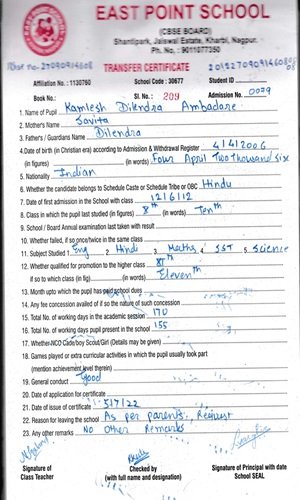 EAST POINT SCHOOL
(CBSE BOARD)
Shantipark, Jaiswal Estate, Kharbi, Nagpur.
Ph. No. : 9011077350
TRANSFER CERTIFICATE
Affiliation No. : 1130760 School Code : 30677 Student ID
Book No.: Sl. No.: 209 Admission No. 0079
1. Name of Pupil Kamlesh Dilendra Ambadare
2. Mother's Name Savita
3. Father's / Guardians Name Dilendra
4. Date of birth (in Christian era) according to Admission & Withdrawal Register 4/4/2006
(in figures) (in words) Four April Two thousand six
5. Nationality Indian
6. Whether the candidate belongs to Schedule Caste or Schedule Tribe or OBC Hindu
7. Date of first admission in the School with class 12/6/12
8. Class in which the pupil last studied (in figures) 8th (in words) Tenth
9. School / Board Annual examination last taken with result
10. Whether failed, if so once/twice in the same class
11. Subject Studied 1. Eng 2. Hindi 3. Maths 4. SST 5. Science
12. Whether qualified for promotion to the higher class XIth
if so to which class (in fig) (in words) Eleventh
13. Month upto which the pupil has paid school dues
14. Any fee concession availed of if so the nature of such concession
15. Total No. of working days in the academic session 170
16. Total No. of working days pupil present in the school 155
17. Whether-NCO Cade/boy Scout/Girl (Details may be given)
18. Games played or extra curricular activities in which the pupil usually took part
(mention achievement level therein)
19. General conduct Good
20. Date of application for certificate
21. Date of issue of certificate 5/7/22
22. Reason for leaving the school As per parents Request
23. Any other remarks No Other Remarks
Signature of Class Teacher
Checked by (with full name and designation)
Signature of Principal with date School SEAL